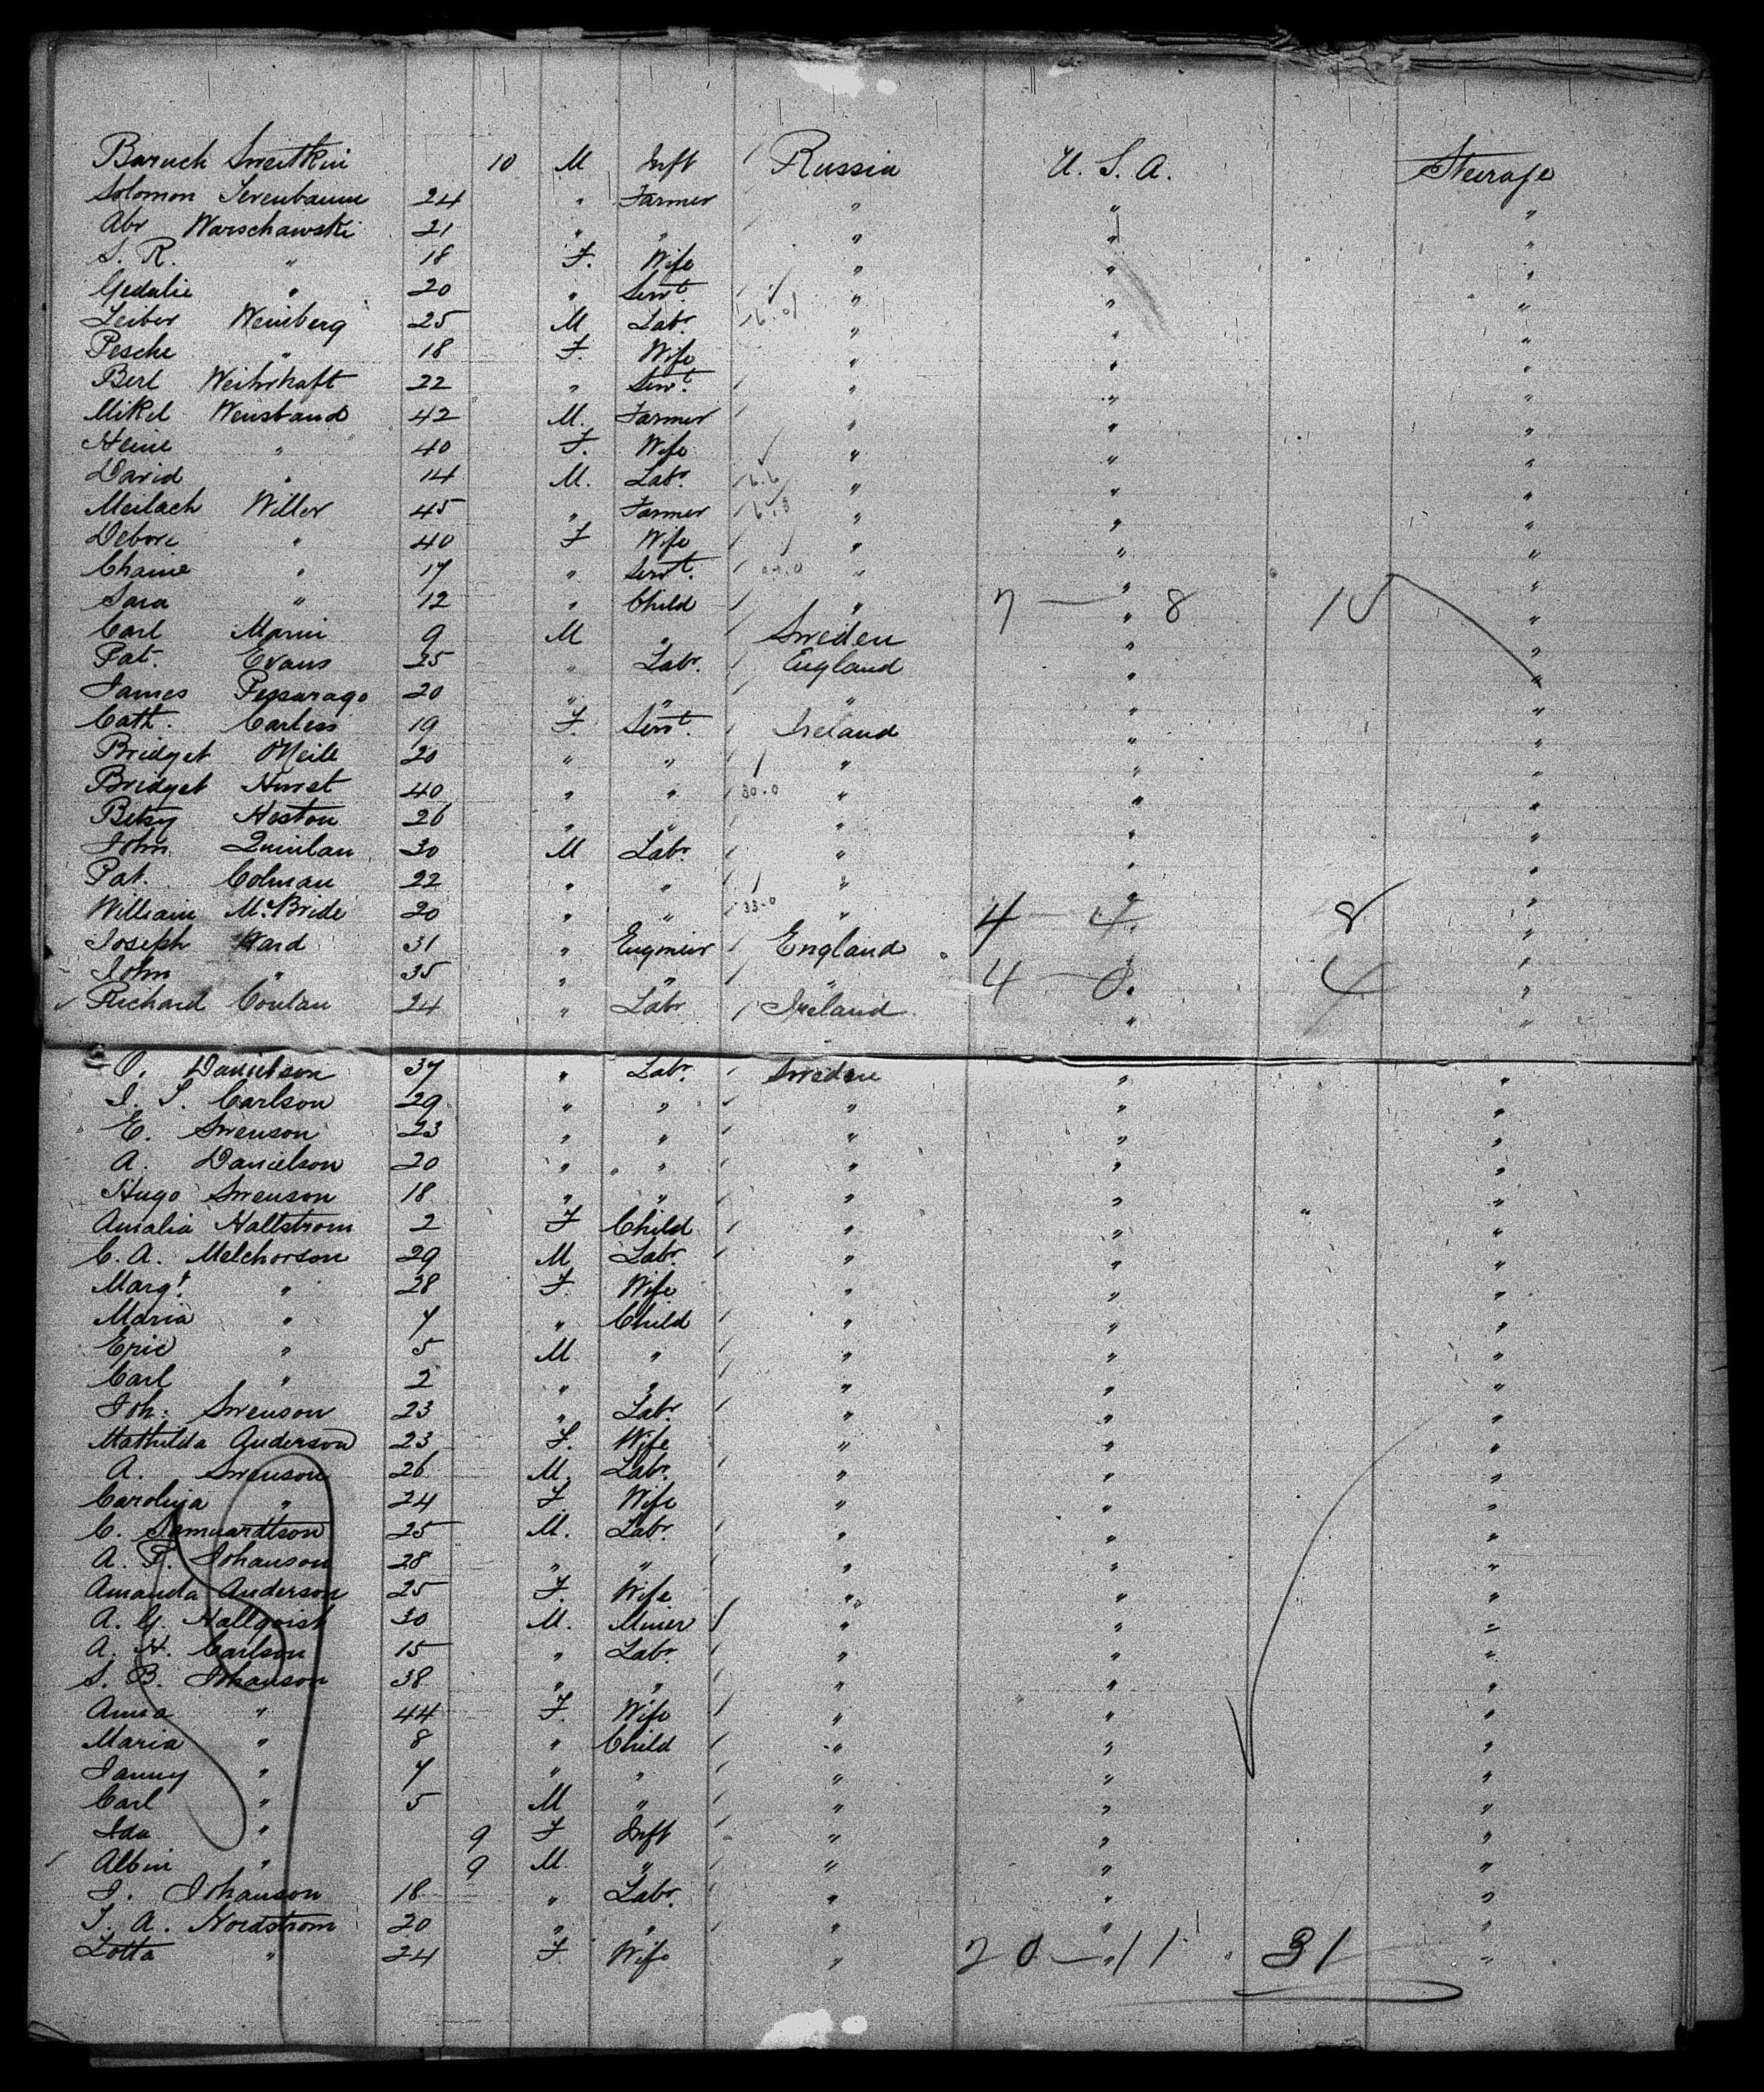 Baruch Sweitkin 10 M Inft Russia U.S.A. Steerage
Solomon Serenbaum 24 " Farmer " " "
Abr Warschawski 21 " " " " "
S. R. " 18 F. Wife " " "
Gedalie " 20 " Servt. " " "
Leiber Weinberg 25 M Labr. " " "
Pesche " 18 F. Wife " " "
Berl Weihrhaft 22 " Servt. " " "
Mikel Weisband 42 M. Farmer " " "
Heine " 40 F. Wife " " "
David " 14 M. Labr. " " "
Meilach Willer 45 " Farmer " " "
Debore " 40 F Wife " " "
Chaine " 17 " Servt. " " "
Sara " 12 " Child " 7 — 8 " 15 "
Carl Marni 9 M " Sweden " "
Pat. Evans 25 " Labr. England " "
James 20 " " " " "
Cath. Carless 19 F. Servt. Ireland " "
Bridget O'Neill 20 " " " " "
Bridget Hurst 40 " " 30-0 " " "
Betsy Heston 26 " " " " "
John Quinlan 30 M Labr. " " "
Pat. Colman 22 " " " " "
William McBride 20 " " 33-0 " 4 — 4 " 8 "
Joseph Ward 31 " Engineer England " "
John " 35 " " " 4 — 0 " 4 "
Richard Conlan 24 " Labr Ireland " "
O. Danielson 37 " Labr. Sweden " "
I. S. Carlson 29 " " " " "
E. Swenson 23 " " " " "
A. Danielson 20 " " " " "
Hugo Swenson 18 " " " " "
Amalia Hallstrom 2 F Child " " "
C. A. Melchorson 29 M Labr. " " "
Margt. " 28 F. Wife " " "
Maria " 7 " Child " " "
Eric " 5 M " " " "
Carl " 2 " " " " "
Joh: Swenson 23 " Labr. " " "
Mathilda Anderson 23 F. Wife " " "
A. Swenson 26 M. Labr. " " "
Carolina " 24 F. Wife " " "
C. 25 M. Labr. " " "
A. P. Johanson 28 " " " " "
Amanda Anderson 25 F. Wife " " "
A. G. Hallqvist 30 M. Miner " " "
A. H. Carlson 15 " Labr. " " "
S. B. Johanson 38 " " " " "
Anna " 44 F. Wife " " "
Maria " 8 " Child " " "
Fanny " 7 " " " " "
Carl " 5 M " " " "
Ida " 9 F Inft " " "
Albin " 9 M. " " " "
J. Johanson 18 " Labr. " " "
J. A. Nordstrom 20 " " " " "
Lotta " 24 F. Wife " 20 — 11 " 31 "